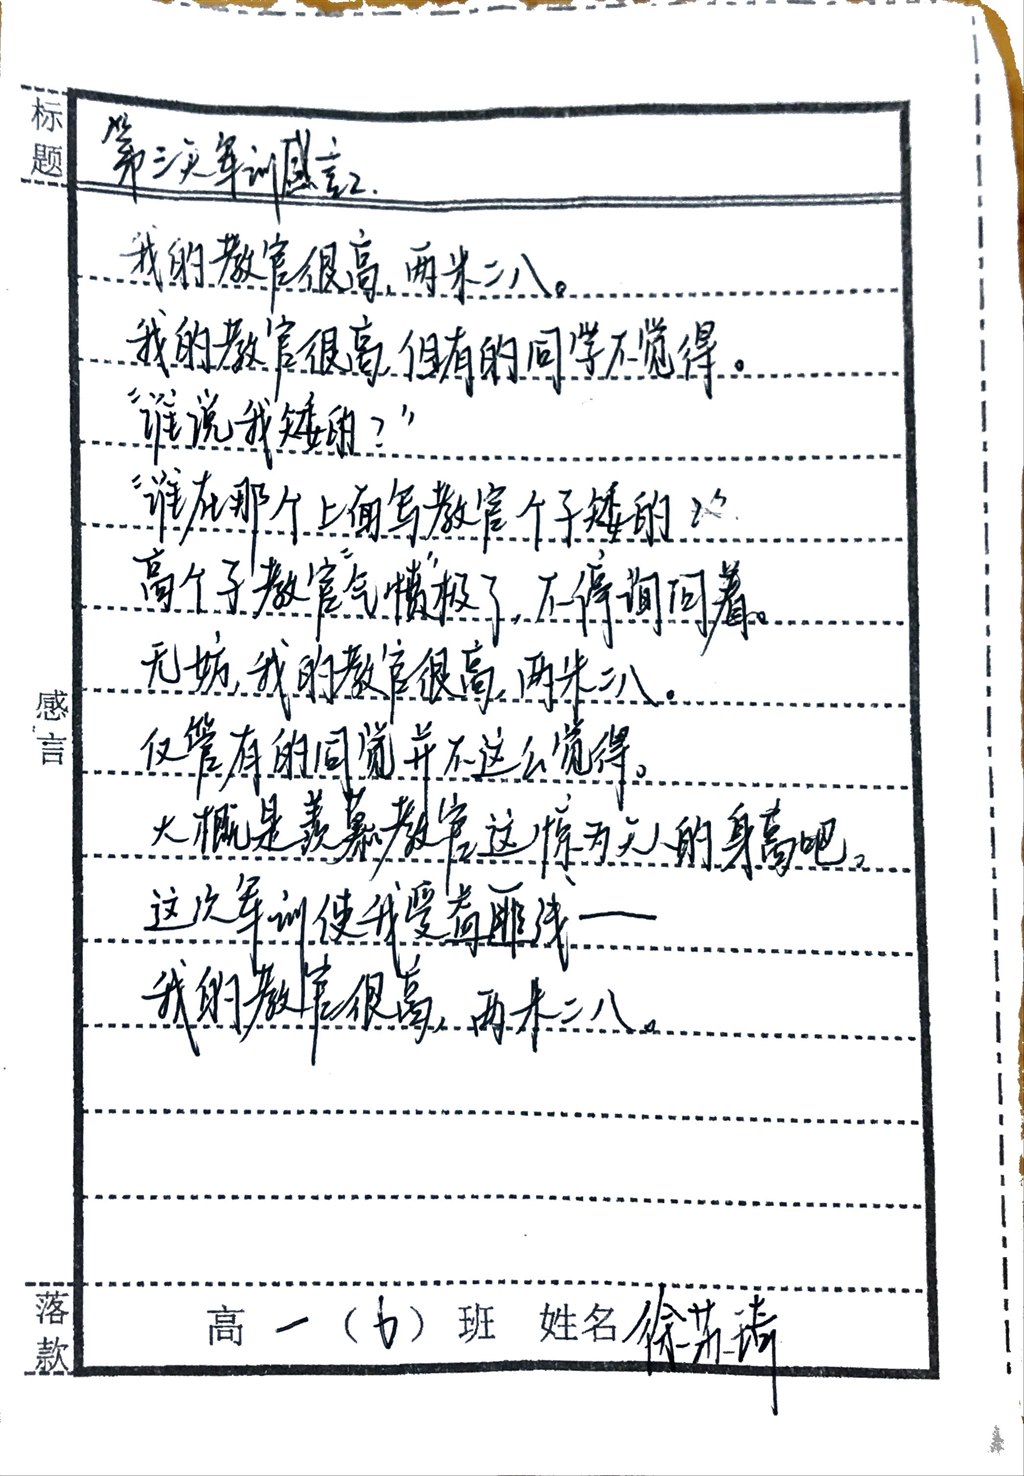 标题
第三天军训感言2.
我的教官很高,两米二八。
我的教官很高,但有的同学不觉得。
“谁说我矮的?”
“谁在那个上面写教官个子矮的?”
高个子教官“气愤”极了,不停询问着。
无妨,我的教官很高,两米二八。
仅管有的同觉并不这么觉得。
大概是羡慕教官这惊为天人的身高吧。
这次军训使我受益匪浅——
我的教官很高,两米二八。
感言
落款
高一(6)班 姓名徐苏琦